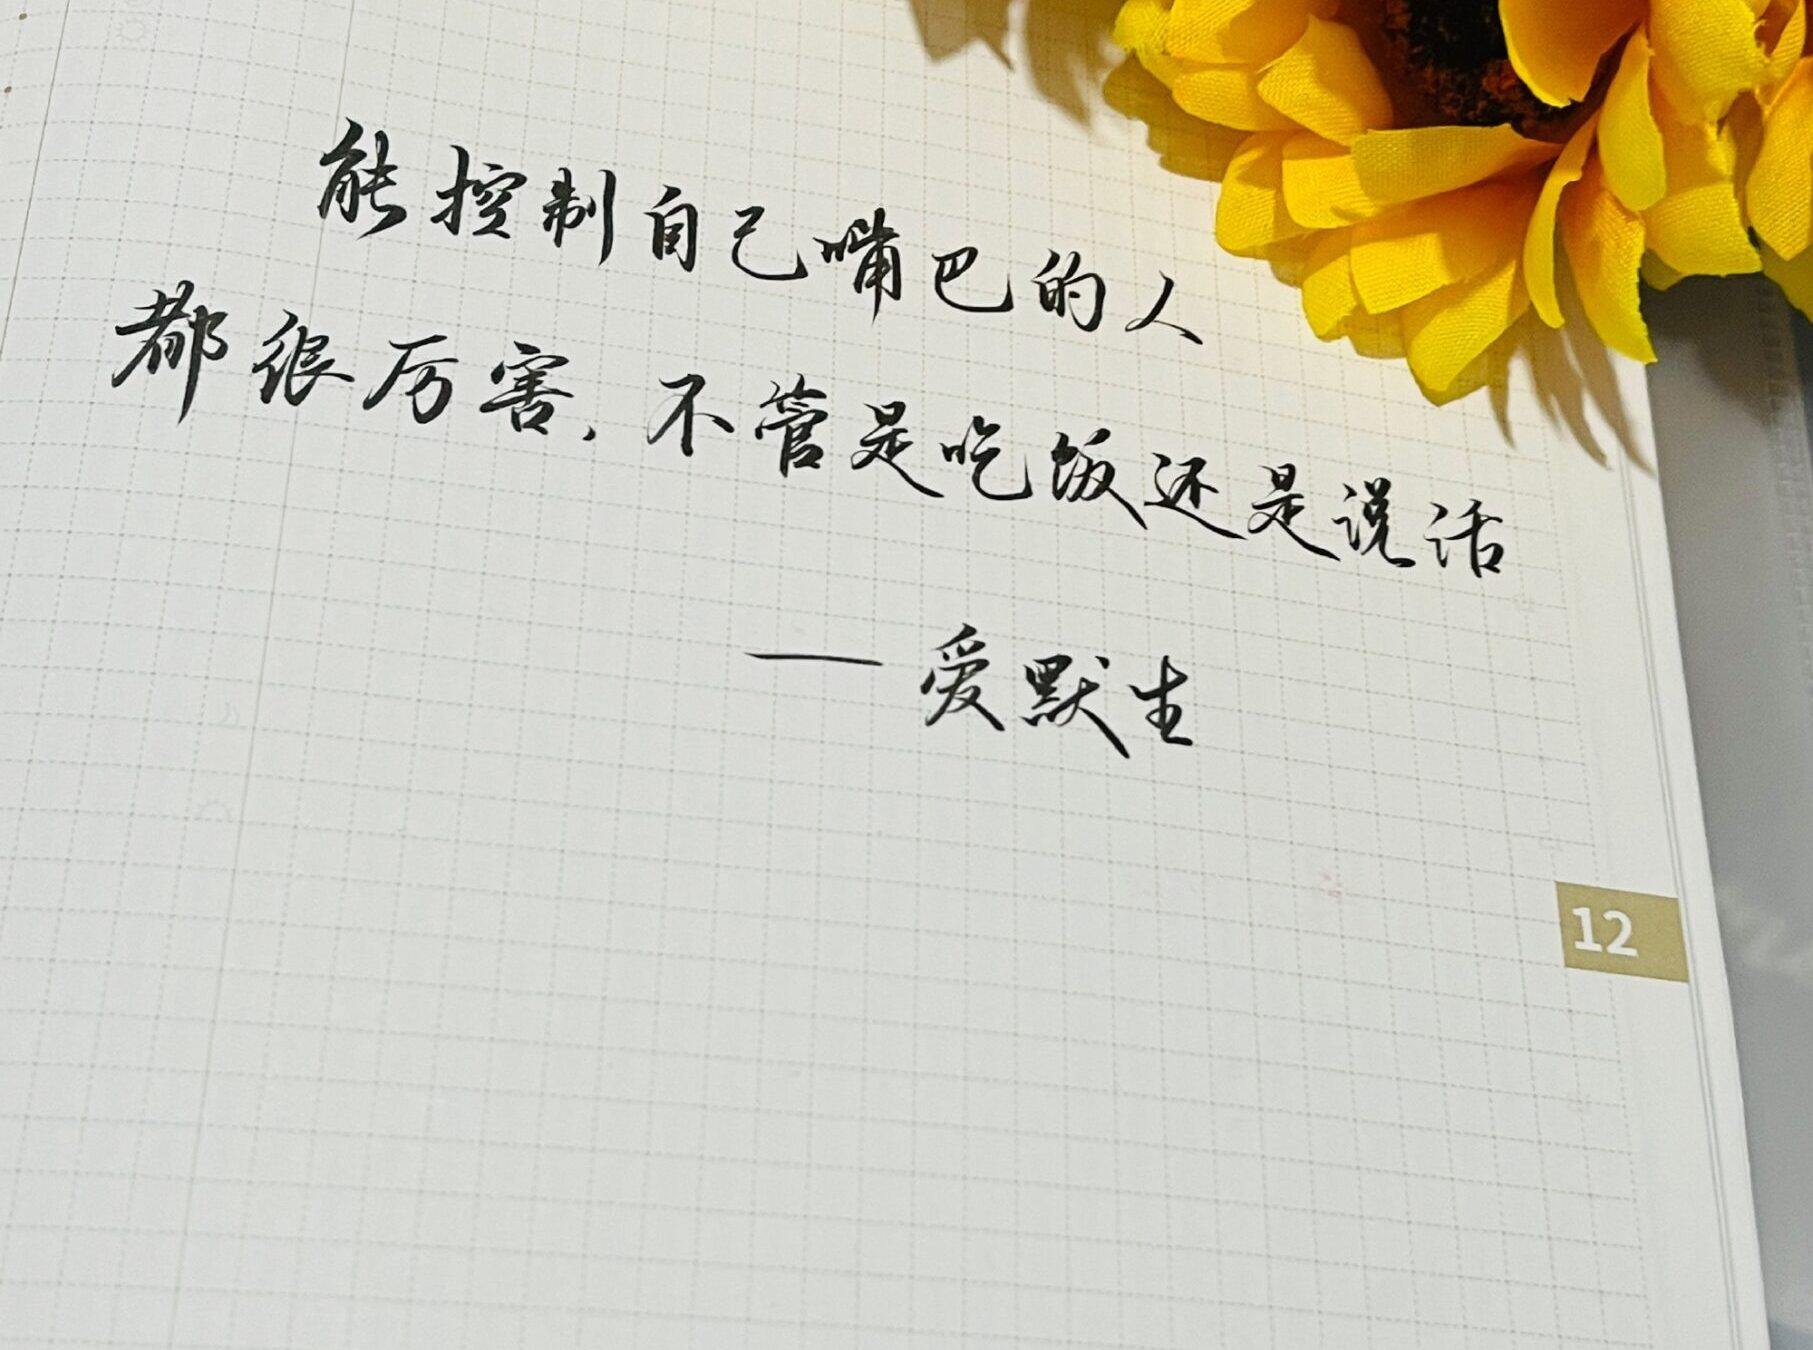 能控制自己嘴巴的人
都很厉害，不管是吃饭还是说话
—爱默生
12